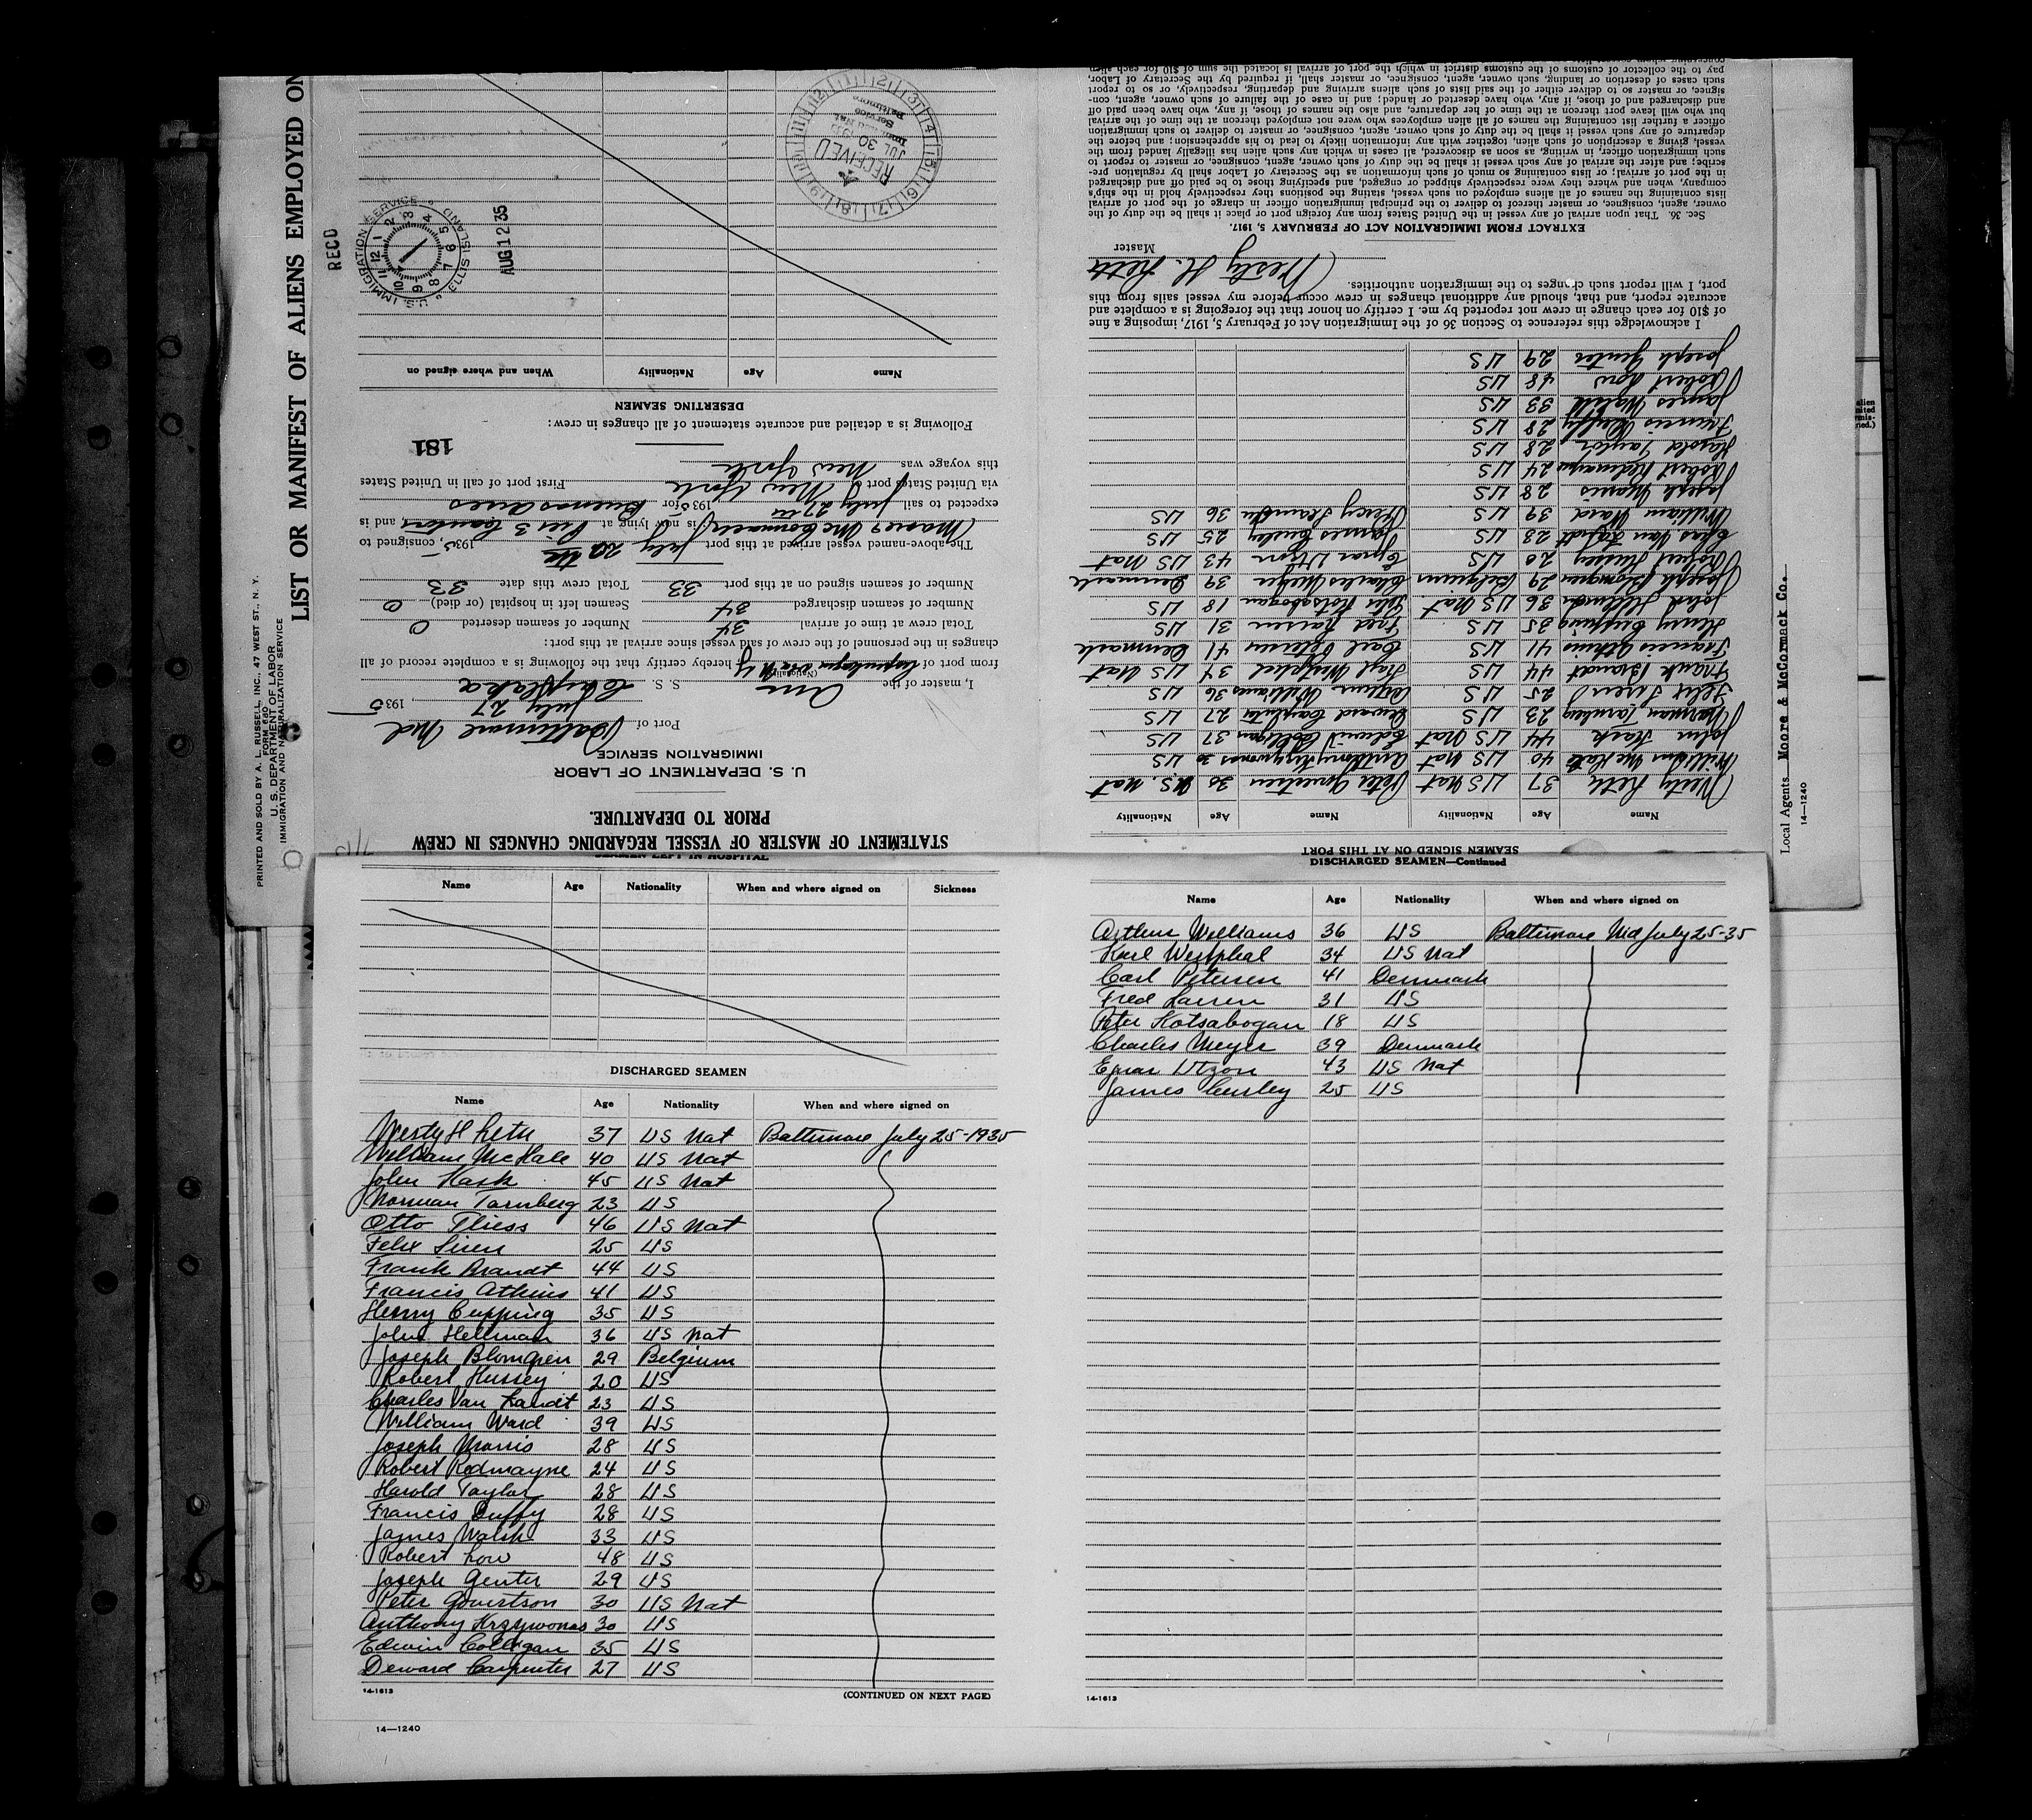 PRINTED AND SOLD BY A. L. RUSSELL, INC., 47 WEST ST., N. Y.
FORM 680
U. S. DEPARTMENT OF LABOR
IMMIGRATION AND NATURALIZATION SERVICE
LIST OR MANIFEST OF ALIENS EMPLOYED ON
RECD
U.S. IMMIGRATION SERVICE ELLIS ISLAND
AUG 12 35
STATEMENT OF MASTER OF VESSEL REGARDING CHANGES IN CREW
PRIOR TO DEPARTURE.
U. S. DEPARTMENT OF LABOR
IMMIGRATION SERVICE
Port of Baltimore Md
July 27 1935
I, master of the Am S. S. City Flaka
(Nationality)
from port of Copenhagen via N Y hereby certify that the following is a complete record of all
changes in the personnel of the crew of said vessel since arrival at this port:
Total crew at time of arrival 34 Number of seamen deserted 0
Number of seamen discharged 34 Seamen left in hospital (or died) 0
Number of seamen signed on at this port 33 Total crew this date 33
The above-named vessel arrived at this port July 20th 1935, consigned to
Moore & McCormack; is now lying at Pier 3 Canton, and is
expected to sail July 27th 1935 for Buenos Aires
via United States port of New York First port of call in United States
this voyage was New York
181
Following is a detailed and accurate statement of all changes in crew:
DESERTING SEAMEN
Name Age Nationality When and where signed on
RECEIVED
JUL 30 1935
Service
Baltimore
SEAMEN SIGNED ON AT THIS PORT
Name Age Nationality Name Age Nationality
Westy Leth 37 US Nat Peter Govertsen 30 U.S. Nat
William McHale 40 US Nat Anthony Krzywonos 30 US
John Hask 44 US Nat Edwin Colligan 37 US
Norman Tarnberg 23 US Deward Carpenter 27 US
Felix Siren 25 US Arthur Williams 36 US
Frank Brandt 44 US Karl Westphal 34 US Nat
Francis Athins 41 US Carl Petersen 41 Denmark
Henry Cupping 35 US Fred Larsen 31 US
John Hellman 36 US Nat Peter Kotsabogan 18 US
Joseph Blomgren 29 Belgium Charles Meyer 39 Denmark
Robert Hussey 20 US Egnar Utzon 43 US Nat
Chas Van Zandt 23 US James Cursley 25 US
William Ward 39 US Percy 36 US
Joseph Morris 28 US
Robert Redmayne 24 US
Harold Taylor 28 US
Francis Duffy 28 US
James Walsh 33 US
Robert Low 48 US
Joseph Genter 29 US
I acknowledge this reference to Section 36 of the Immigration Act of February 5, 1917, imposing a fine
of $10 for each change in crew not reported by me. I certify on honor that the foregoing is a complete and
accurate report, and that, should any additional changes in crew occur before my vessel sails from this
port, I will report such changes to the immigration authorities.
Westy H. Leth
Master
EXTRACT FROM IMMIGRATION ACT OF FEBRUARY 5, 1917.
Sec. 36. That upon arrival of any vessel in the United States from any foreign port or place it shall be the duty of the
owner, agent, consignee, or master thereof to deliver to the principal immigration officer in charge of the port of arrival
lists containing the names of all aliens employed on such vessel, stating the positions they respectively hold in the ship's
company, when and where they were respectively shipped or engaged, and specifying those to be paid off and discharged
in the port of arrival; or lists containing so much of such information as the Secretary of Labor shall by regulation pre-
scribe; and after the arrival of any such vessel it shall be the duty of such owner, agent, consignee, or master to report to
such immigration officer, in writing, as soon as discovered, all cases in which any such alien has illegally landed from the
vessel, giving a description of such alien, together with any information likely to lead to his apprehension; and before the
departure of any such vessel it shall be the duty of such owner, agent, consignee, or master to deliver to such immigration
officer a further list containing the names of all alien employees who were not employed thereon at the time of the arrival
but who will leave port thereon at the time of her departure, and also the names of those, if any, who have been paid off
and discharged and of those, if any, who have deserted or landed; and in case of the failure of such owner, agent, con-
signee, or master so to deliver either of the said lists of such aliens arriving and departing, respectively, or so to report
such cases of desertion or landing, such owner, agent, consignee, or master shall, if required by the Secretary of Labor,
pay to the collector of customs of the customs district in which the port of arrival is located the sum of $10 for each alien
Local Agents Moore & McCormack Co.
14—1240
SEAMEN LEFT IN HOSPITAL
Name Age Nationality When and where signed on Sickness
DISCHARGED SEAMEN
Name Age Nationality When and where signed on
Westy H Leth 37 US Nat Baltimore July 25-1935
William McHale 40 US Nat
John Hask 45 US Nat
Norman Tarnberg 23 US
Otto Thiess 46 US Nat
Felix Siren 25 US
Frank Brandt 44 US
Francis Athins 41 US
Henry Cupping 35 US
John Hellman 36 US Nat
Joseph Blomgren 29 Belgium
Robert Hussey 20 US
Charles Van Zandt 23 US
William Ward 39 US
Joseph Morris 28 US
Robert Redmayne 24 US
Harold Taylor 28 US
Francis Duffy 28 US
James Walsh 33 US
Robert Low 48 US
Joseph Genter 29 US
Peter Govertson 30 US Nat
Anthony Krzywonos 30 US
Edwin Colligan 35 US
Deward Carpenter 27 US
14-1613
(CONTINUED ON NEXT PAGE)
14—1240
DISCHARGED SEAMEN—Continued
Name Age Nationality When and where signed on
Arthur Williams 36 US Baltimore Md July 25-35
Karl Westphal 34 US Nat
Carl Petersen 41 Denmark
Fred Larsen 31 US
Peter Kotsabogan 18 US
Charles Meyer 39 Denmark
Egnar Utzon 43 US Nat
James Cursley 25 US
14-1613